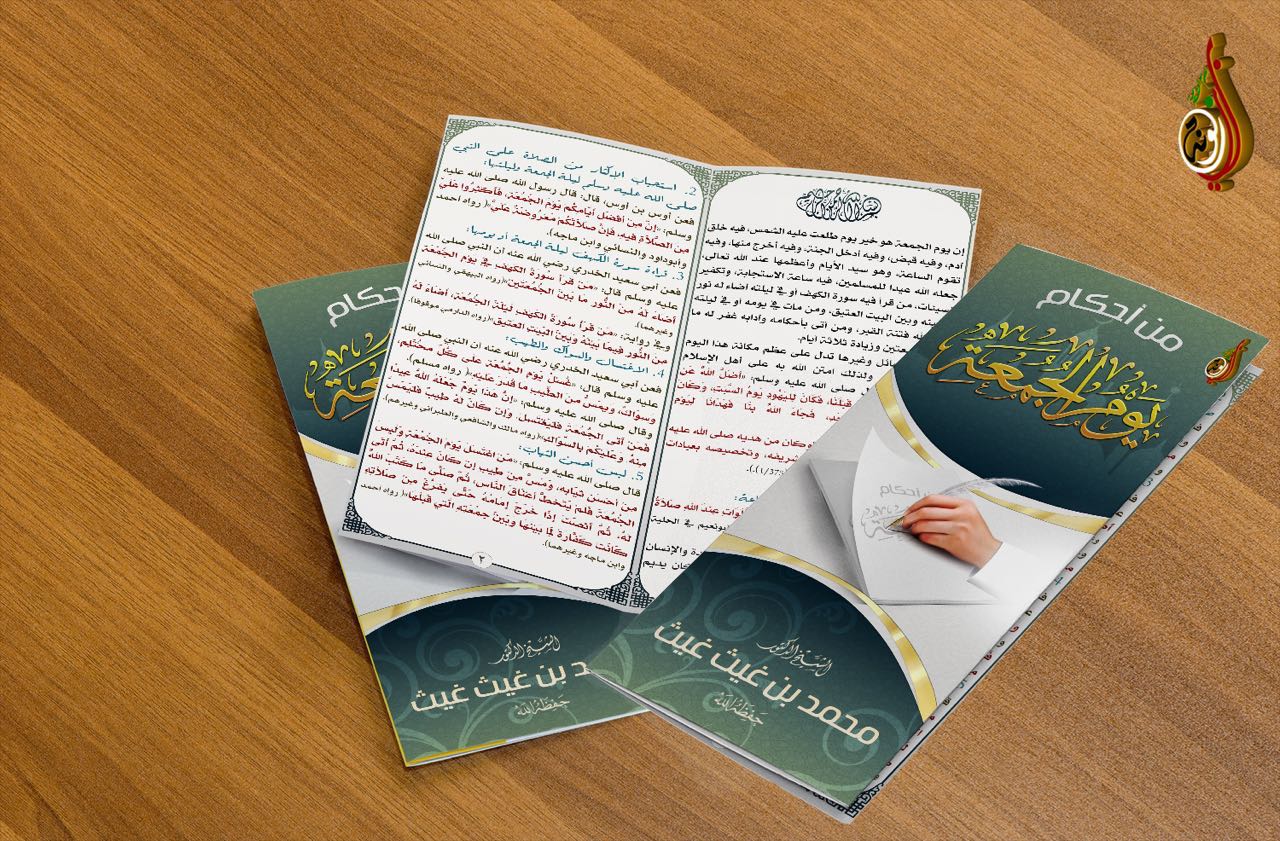 من أحكام
يوم الجمعة
الشيخ الدكتور
محمد بن غيث غيث
حفظه الله
إن يوم الجمعة هو خير يوم طلعت عليه الشمس، فيه خلق
آدم، وفيه قبض، وفيه أدخل الجنة، وفيه أخرج منها، وفيه
تقوم الساعة، وهو سيد الأيام وأعظمها عند الله تعالى،
جعله الله عيدا للمسلمين، فيه ساعة الاستجابة، وتكفير
السيئات، من قرأ فيه سورة الكهف أو في ليلته أضاء له نور
بينه وبين البيت العتيق، ومن مات في يومه أو في ليلته
الله فتنة القبر، ومن أتى بأحكامه وآدابه غفر له ما
وزيادة ثلاثة أيام.
وغيرها تدل على عظم مكانة هذا اليوم
ولذلك امتن الله به على أهل الإسلام
صلى الله عليه وسلم: «أضل الله عن
قبلنا، فكان لليهود يوم السبت، وكان
فجاء الله بنا فهدانا ليوم
وكان من هديه صلى الله عليه
وتخصيصه بعبادات
عند الله صلاة
2. استحباب الإكثار من الصلاة على النبي
صلى الله عليه وسلم ليلة الجمعة وليلتها:
فعن أوس بن أوس، قال: قال رسول الله صلى الله عليه
وسلم: «إنَّ مِن أفضل أيَّامكُم يومَ الجُمُعَة، فأكثرُوا عَليَّ
مِن الصَّلَاة فيه، فإنَّ صلاتَكُم مَعرُوضَةٌ عَليَّ»( رواه أحمد
وأبوداود والنسائي وابن ماجه).
3. قراءة سورة الكهف ليلة الجمعة أو يومها:
فعن أبي سعيد الخدري رضي الله عنه أن النبي صلى الله
عليه وسلم قال: «مَن قرأ سُورَة الكهف في يَوم الجُمُعَة
أضاءَ لهُ من النُّور مَا بَينَ الجُمُعَتين»(رواه البيهقي والنسائي
وغيرهما).
وفي رواية: «مَن قرأ سُورَة الكهف ليلَة الجُمُعَة، أضاءَ لهُ
من النُّور فيمَا بَينَهُ وبَينَ البَيت العتيق»(رواه الدارمي موقوفا).
4. الاغتسال والسواك والطيب:
فعن أبي سعيد الخدري رضي الله عنه أن النبي صلى الله
عليه وسلم قال: «غُسلُ يَوم الجُمُعَة عَلى كُلِّ مُحتَلم،
وسوَاكٌ، ويَمَسُّ من الطِّيب مَا قدَر عَليه»(رواه مسلم).
وقال صلى الله عليه وسلم: «إنَّ هذا يَومٌ جَعَلهُ اللهُ عيدًا
فمَن أتى الجُمُعَة فليَغتَسل، وإن كانَ لهُ طيبٌ فليَمَسَّ
منهُ، وعَليكُم بالسِّوَاك»(رواه مالك والشافعي والطبراني وغيرهم).
5. لبس أحسن الثياب:
قال صلى الله عليه وسلم: «من اغتَسَل يَومَ الجُمُعَة ولبسَ
من أحسَن ثيَابه، ومَسَّ من طيب إن كانَ عندَهُ، ثُمَّ أتى
الجُمُعَة فلم يَتَخطَّ أعنَاقَ النَّاس، ثُمَّ صَلى مَا كتَبَ اللهُ
لهُ، ثُمَّ أنصَتَ إذا خرَجَ إمَامُهُ حَتَّى يَفرُغَ من صَلاته
كانَت كفَّارَةً لمَا بَينَهَا وبَينَ جُمُعَته التي قبلهَا»( رواه أحمد
وابن ماجه وغيرهما).
٢